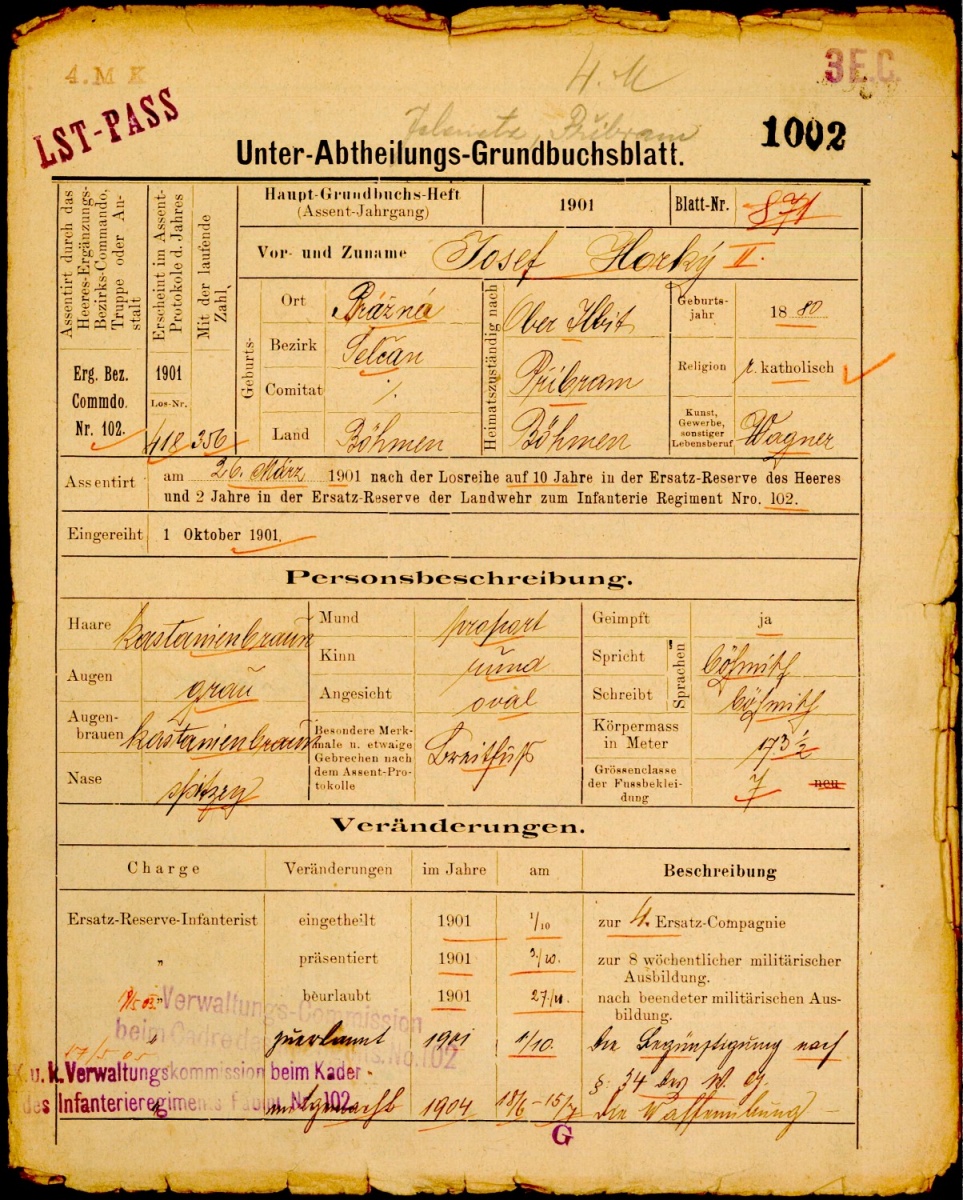 4. M K
4. M
3 E.C.
LST-PASS
Přibram
1002
Unter-Abtheilungs-Grundbuchsblatt.
Assentirt durch das Heeres-Ergänzungs-Bezirks-Commando, Truppe oder Anstalt
Erscheint im Assent-Protokole d. Jahres
Mit der laufende Zahl
Haupt-Grundbuchs-Heft
(Assent-Jahrgang)
1901
Blatt-Nr.
871
Vor- und Zuname
Josef Horký II.
Erg. Bez. Commdo. Nr. 102.
1901
Los-Nr.
418
356
Geburts-
Ort
Prázná
Bezirk
Selčan
Comitat
∕.
Land
Böhmen
Heimatszuständig nach
Ober Hbit
Přibram
Böhmen
Geburts-
jahr
1880
Religion
r. katholisch
Kunst,
Gewerbe,
sonstiger
Lebensberuf
Wagner
Assentirt
am 26. März 1901 nach der Losreihe auf 10 Jahre in der Ersatz-Reserve des Heeres
und 2 Jahre in der Ersatz-Reserve der Landwehr zum Infanterie Regiment Nro. 102.
Eingereiht
1 Oktober 1901.
Personsbeschreibung.
Haare
kastanienbraun
Augen
grau
Augen-
brauen
kastanienbraun
Nase
spitzig
Mund
proport
Kinn
rund
Angesicht
oval
Besondere Merk-
male u. etwaige
Gebrechen nach
dem Assent-Pro-
tokolle
Breitfuß
Geimpft
ja
Sprachen
Spricht
böhmisch
Schreibt
böhmisch
Körpermass
in Meter
173½
Grössenclasse
der Fussbeklei-
dung
7
neu
Veränderungen.
Charge
Veränderungen
im Jahre
am
Beschreibung
Ersatz-Reserve-Infanterist
eingetheilt
1901
1/10
zur 4. Ersatz-Compagnie
„
präsentiert
1901
3/10.
zur 8 wöchentlicher militärischer
Ausbildung.
„
beurlaubt
1901
27/11.
nach beendeter militärischen Aus-
bildung.
Verwaltungs-Commission
beim Cadre des No. 102
zuerkannt
1901
1/10.
die Begünstigung nach
§: 34 des W. G.
17/5 05
k. u. k. Verwaltungskommission beim Kader
des Infanterieregiments Nr. 102
mitgemacht
1904
18/6 – 15/7
die Waffenübung
G